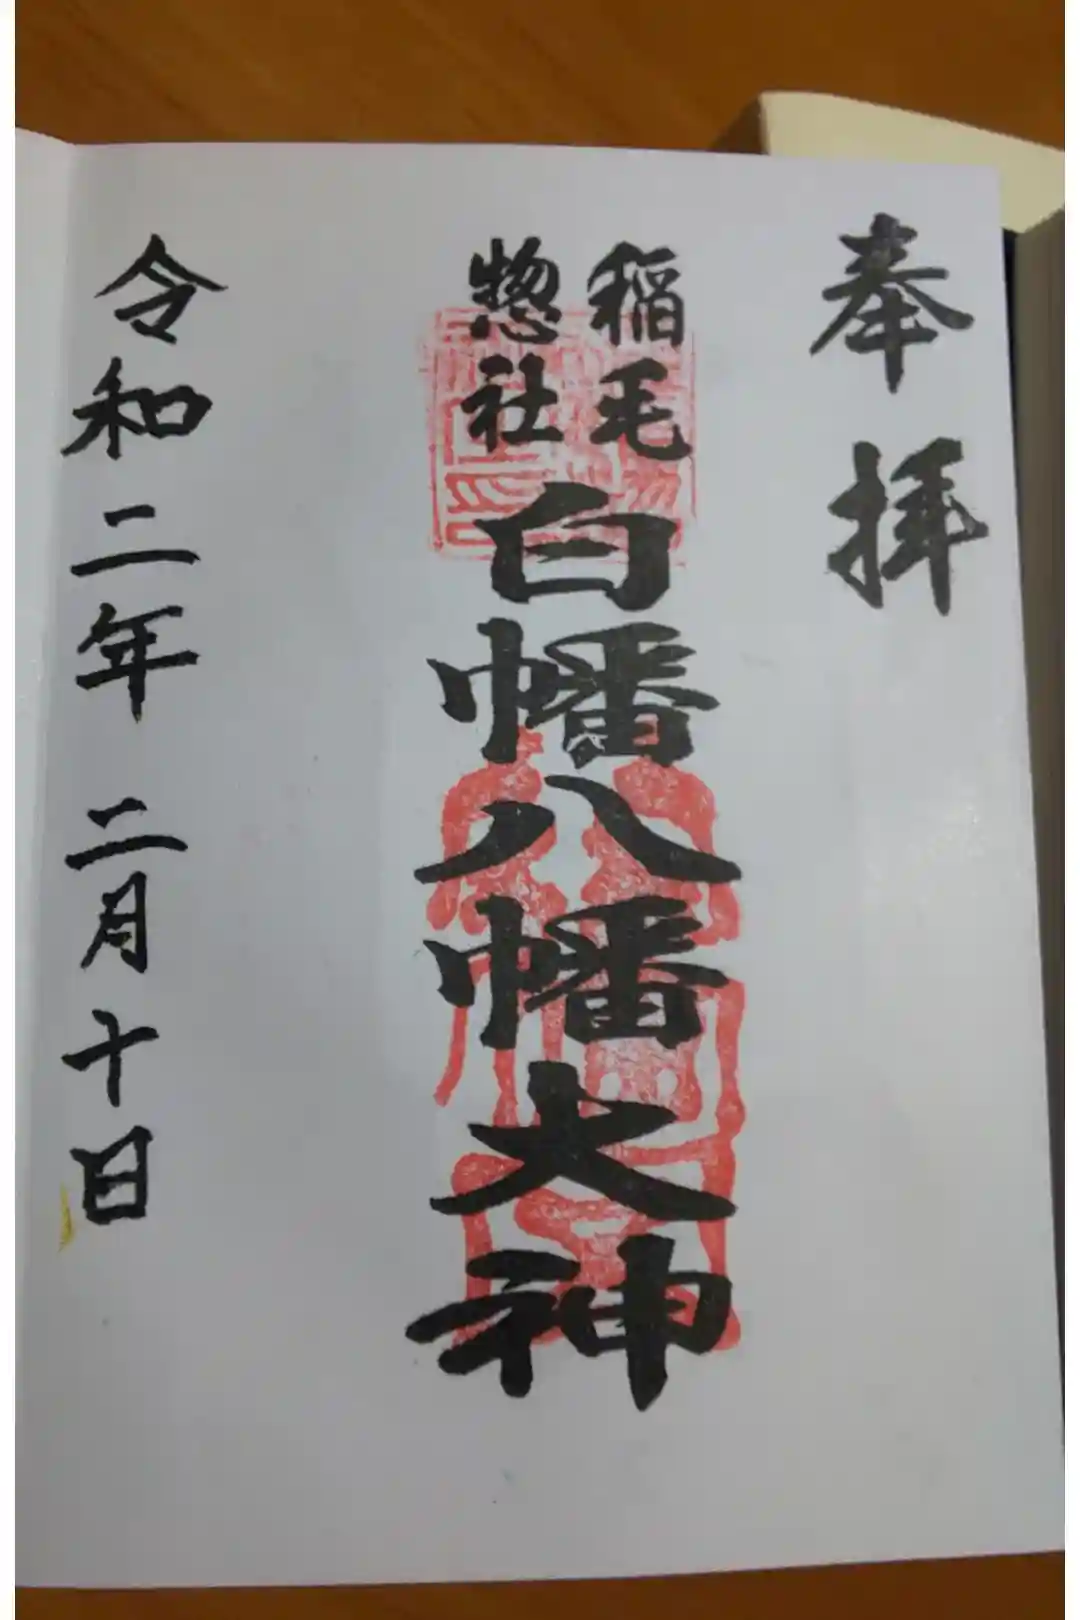 奉拝
稲毛
惣社
白幡八幡大神
令和二年 二月十日